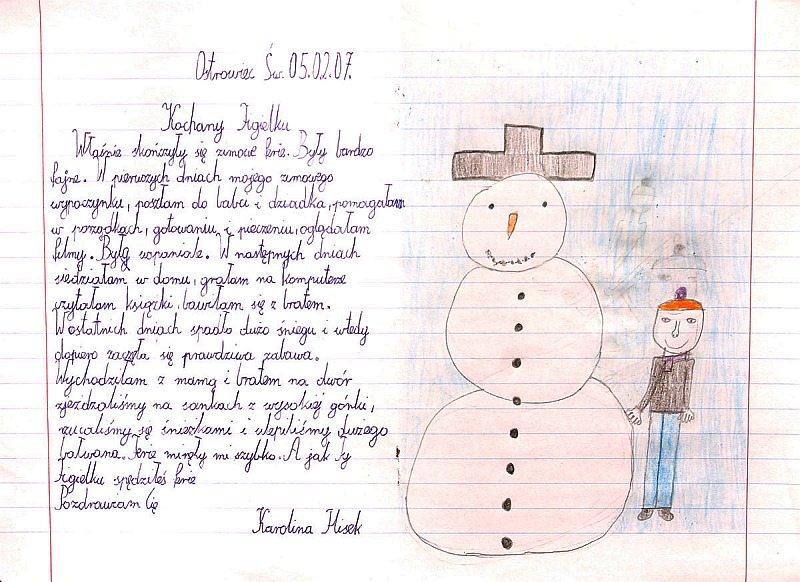 Ostrowiec Św. 05.02.07.
Kochany Figielku
Właśnie skończyły się zimowe ferie. Były bardzo
fajne. W pierwszych dniach mojego zimowego
wypoczynku, poszłam do babci i dziadka, pomagałam
w porządkach, gotowaniu i pieczeniu, oglądałam
filmy. Było wspaniale. W następnych dniach
siedziałam w domu, grałam na komputerze
czytałam książki, bawiłam się z bratem.
W ostatnich dniach spadło dużo śniegu i wtedy
dopiero zaczęła się prawdziwa zabawa.
Wychodziłam z mamą i bratem na dwór
zjeżdżaliśmy na sankach z wysokiej górki,
rzucaliśmy się śnieżkami i ulepiliśmy dużego
bałwana. Ferie minęły mi szybko. A jak Ty
Figielku spędziłeś ferie
Pozdrawiam Cię
Karolina